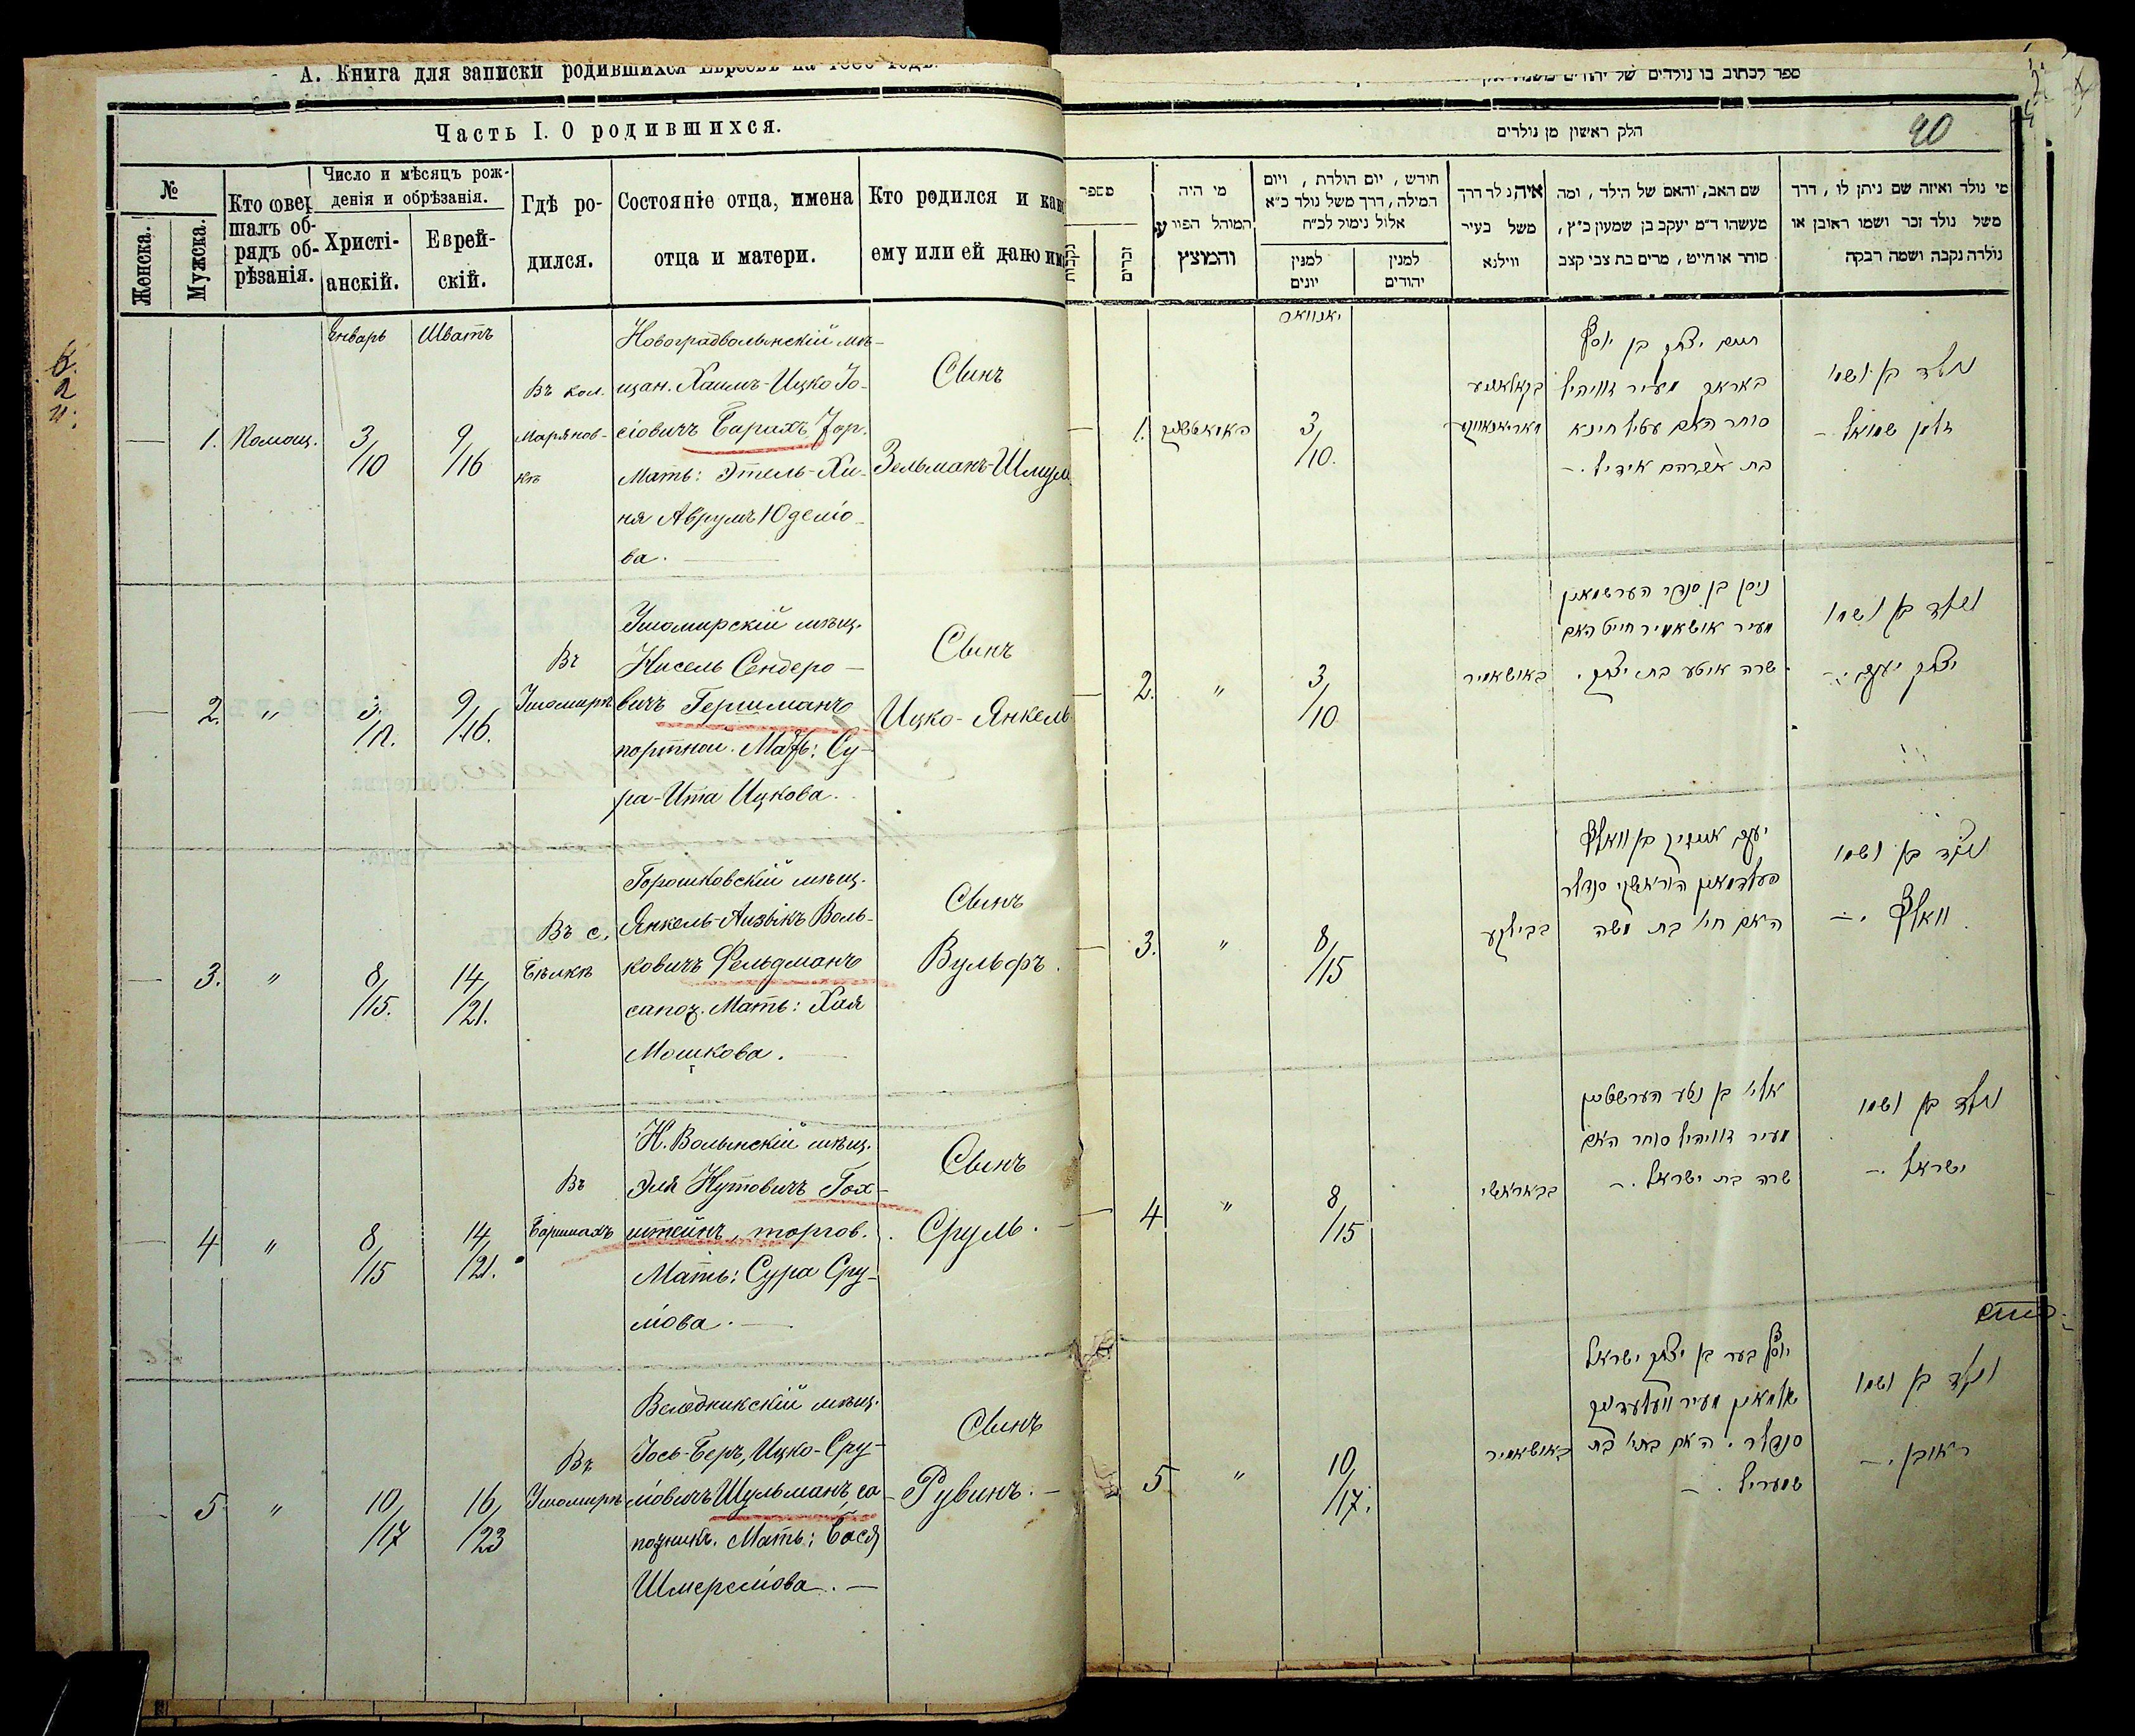 А. Книга для записки родившихся Евреевъ на
Часть I. О родившихся.
№
Женска.
Мужска.
Кто совер
шалъ об-
рядъ об-
рѣзанія.
Число и мѣсяцъ рож-
денія и обрѣзанія.
Христі-
анскій.
Еврей-
скій.
Гдѣ ро-
дился.
Состояніе отца, имена
отца и матери.
Кто родился и как
ему или ей дано им
Январь
Шватъ
1.
Помощ.
3/10
9/16
Въ кол.
Маряновкѣ
Новоградволынскій мѣ-
щан. Хаимъ-Ицко Іо-
сіовичъ Барахъ,
Мать: Этель-Хи-
ня Аврумъ Юделіо-
ва.
Сынъ
Зельманъ-Шмул
2.
"
3/10.
9/16.
Въ
Ушомирѣ
Ушомирскій мѣщ.
Нисель Сендеро-
вичъ Гершманъ
портной. Мать: Су-
ра-Ита Ицкова.
Сынъ
Ицко-Янкель
3.
"
8/15.
14/21.
Въ с.
Бѣлкѣ
Горошковскій мѣщ.
Янкель-Айзикъ Воль-
ковичъ Фельдманъ
сапож. Мать: Хая
Мошкова.
Сынъ
Вульфъ.
4
"
8/15
14/21.
Въ
Барашахъ
Н. Волынскій мѣщ.
Эля Нутовичъ Гох-
штейнъ, торгов.
Мать: Сура Сру-
ліова.
Сынъ
Сруль.
5
"
10/17
16/23
Въ
Ушомирѣ
Веледникскій мѣщ.
Іось-Беръ, Ицко-Сру-
ліовичъ Шульманъ, са-
пожникъ. Мать: Бася
Шмереліова.
Сынъ
Рувинъ.
ספר לכתוב בו נולדים של יהודים
חלק ראשון מן נולדים
40
מספר
נקבות
זכרים
מי היה
המוהל הפורע
והמוצץ
חודש, יום הולדת, ויום
המילה, דרך משל נולד כ״א
אלול נימול לכ״ח
למנין
יונים
למנין
יהודים
איה נולד דרך
משל בעיר
ווילנא
שם האב, והאם של הילד, ומה
מעשהו ד״מ יעקב בן שמעון כ״ץ,
סוחר או חייט, מרים בת צבי קצב
מי נולד ואיזה שם ניתן לו, דרך
משל נולד זכר ושמו ראובן או
נולדה נקבה ושמה רבקה
יאנוואר
1.
3/10.
חיים יצחק בן יוסף
באראך מעיר זוויהיל
סוחר האם עטיל חינא
בת אברהם אידיל.
נולד בן ושמו
זלמן שמואל
2.
"
3/10
באושאמיר
ניסן בן סנדר הערשמאן
מעיר אושאמיר חייט האם
שרה איטע בת יצחק.
נולד בן ושמו
יצחק יעקב
3.
"
8/15
בבילקע
יעקב אייזיק בן וואלף
פעלדמאן סנדלר
האם חי׳ בת משה
נולד בן ושמו
וואלף
4
"
8/15
בבאראשי
אלי׳ בן נטע
מעיר זוויהיל סוחר האם
שרה בת ישראל.
נולד בן ושמו
ישראל
5
"
10/17.
באושאמיר
יוסף בער בן יצחק ישראל
שולמאן מעיר וועלעדניק
סנדלר. האם בת
שמעריל.
נולד בן ושמו
ראובן